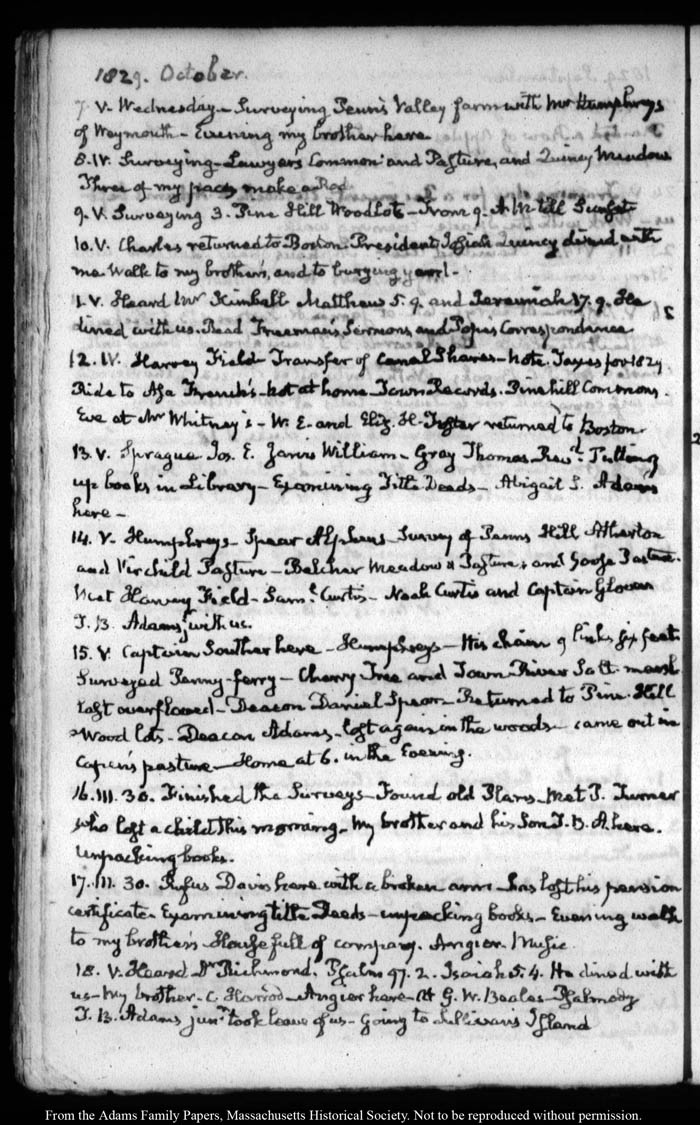 1829. October.
7. V. Wednesday – Surveying Penn's Valley farm with Mr Humphreys
of Weymouth – Evening my brother here.
8. IV. Surveying – Lawyer's Common and Pasture, and Quincy Meadow
Three of my paces make a Rod
9. V. Surveying 3. Pine Hill Wood Lots – From 9. A.M. till Sunset
10. V. Charles returned to Boston. President Josiah Quincy dined with
me. Walk to my brother's, and to burying yard –
11. V. Heard Mr Kimball Matthew 5. 9. and Jeremiah 17. 9. He
dined with us. Read Freeman's Sermons and Pope's Correspondence
12. IV. Harvey Field – Transfer of Canal Shares – Note. Taxes for 1829
Ride to Asa French's – not at home – Town Records. Pine hill Commons.
Eve at Mr Whitney's – W. E. and Eliz. H. Foster returned to Boston
13. V. Sprague Jos. E. Jarvis William – Gray Thomas Revd. Putting
up books in Library – Examining Title Deeds – Abigail S. Adams
here –
14. V. Humphreys – Spear Alpheus – Survey of Penns Hill Atherton
and Verchild Pasture – Belcher Meadow & Pasture, and Goose Pasture.
Met Harvey Field – Saml. Curtis – Noah Curtis and Captain Glover
T. B. Adams jr with us.
15. V. Captain Souther here – Humphreys – His chain 9 links six feet
Surveyed Penny-ferry – Cherry Tree and Town River Salt marsh
last overflowed – Deacon Daniel Spear – Returned to Pine Hill
Wood lots – Deacon Adams – lost again in the woods – came out in
Capen's pasture – Home at 6. in the Evening.
16. III. 30. Finished the Surveys – Found old Plans – Met P. Turner
who lost a child this morning – My brother and his Son T. B. A here.
Unpacking books.
17. III. 30. Rufus Davis here with a broken arm – has lost his pension
certificate – Examining title Deeds – unpacking books – Evening walk
to my brother's – House full of company. Angier. Music
18. V. Heard Dr Richmond. Psalms 97. 2. Isaiah 5. 4. He dined with
us – My brother – C. Harrod – Angier here – At G. W. Beale's – Psalmody
T. B. Adams junr took leave of us – Going to Sullivan's Island
From the Adams Family Papers, Massachusetts Historical Society. Not to be reproduced without permission.